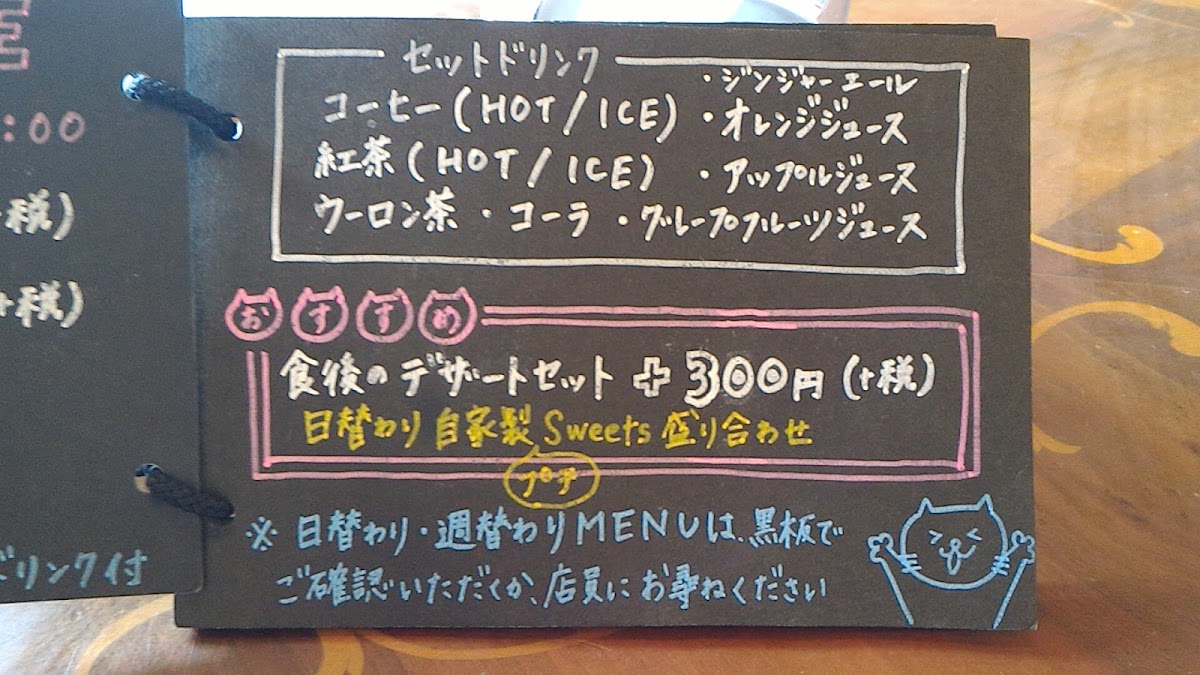 :00
税)
+税)
ドリンク付
セットドリンク
コーヒー(HOT/ICE)
・ジンジャーエール
・オレンジジュース
紅茶(HOT/ICE)
・アップルジュース
ウーロン茶・コーラ・グレープフルーツジュース
おすすめ
食後のデザートセット+300円(+税)
日替わり自家製Sweets盛り合わせ
※日替わり・週替わりMENUは、黒板で
ご確認いただくか、店員にお尋ねください